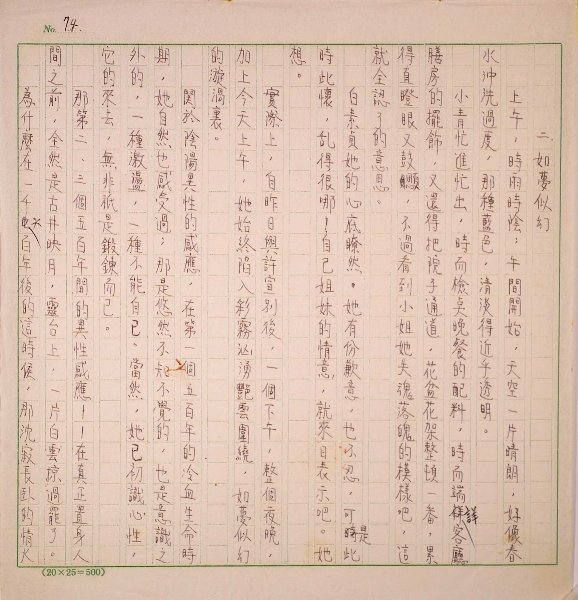 No. 74.
二 如夢似幻
上午，時雨時陰；午間開始，天空一片晴朗，好像春
水沖洗過度，那種藍色，清淡得近乎透明。
小青忙進忙出，時而檢桌晚餐的配料，時而端詳客廳
膳房的擺飾，又還得把院子通道、花盆花架整頓一番，累
得直瞪眼又鼓顋，不過看到小姐她失魂落魄的模樣吧，這
就全認了的意思。
白素貞她的心底瞭然。她有份歉意，也不忍，可是此
時此懷，乱得很哪！自己姐妹的情意，就來日表示吧。她
想。
實際上，自昨日與許宣別後，一個下午，整個夜晚，
加上今天上午，她始終陷入彩霧洶湧艷雲圍繞，如夢似幻
的漩渦裏。
関於陰陽異性的感應，在第一個五百年的冷血生命時
期，她自然也感受過；那是悠然不知不覺的，也是意識之
外的，一種激盪，一種不能自已。當然，她已初識心性，
它的來去，無非祇是鍛鍊而已。
那第二、三個五百年間的異性感應！！在真正置身人
間之前，全然是古井映月，靈台上，一片白雲掠過罷了。
為什麼在一千八百年後的這時候，那沈寂長臥的情火
(20×25＝500)